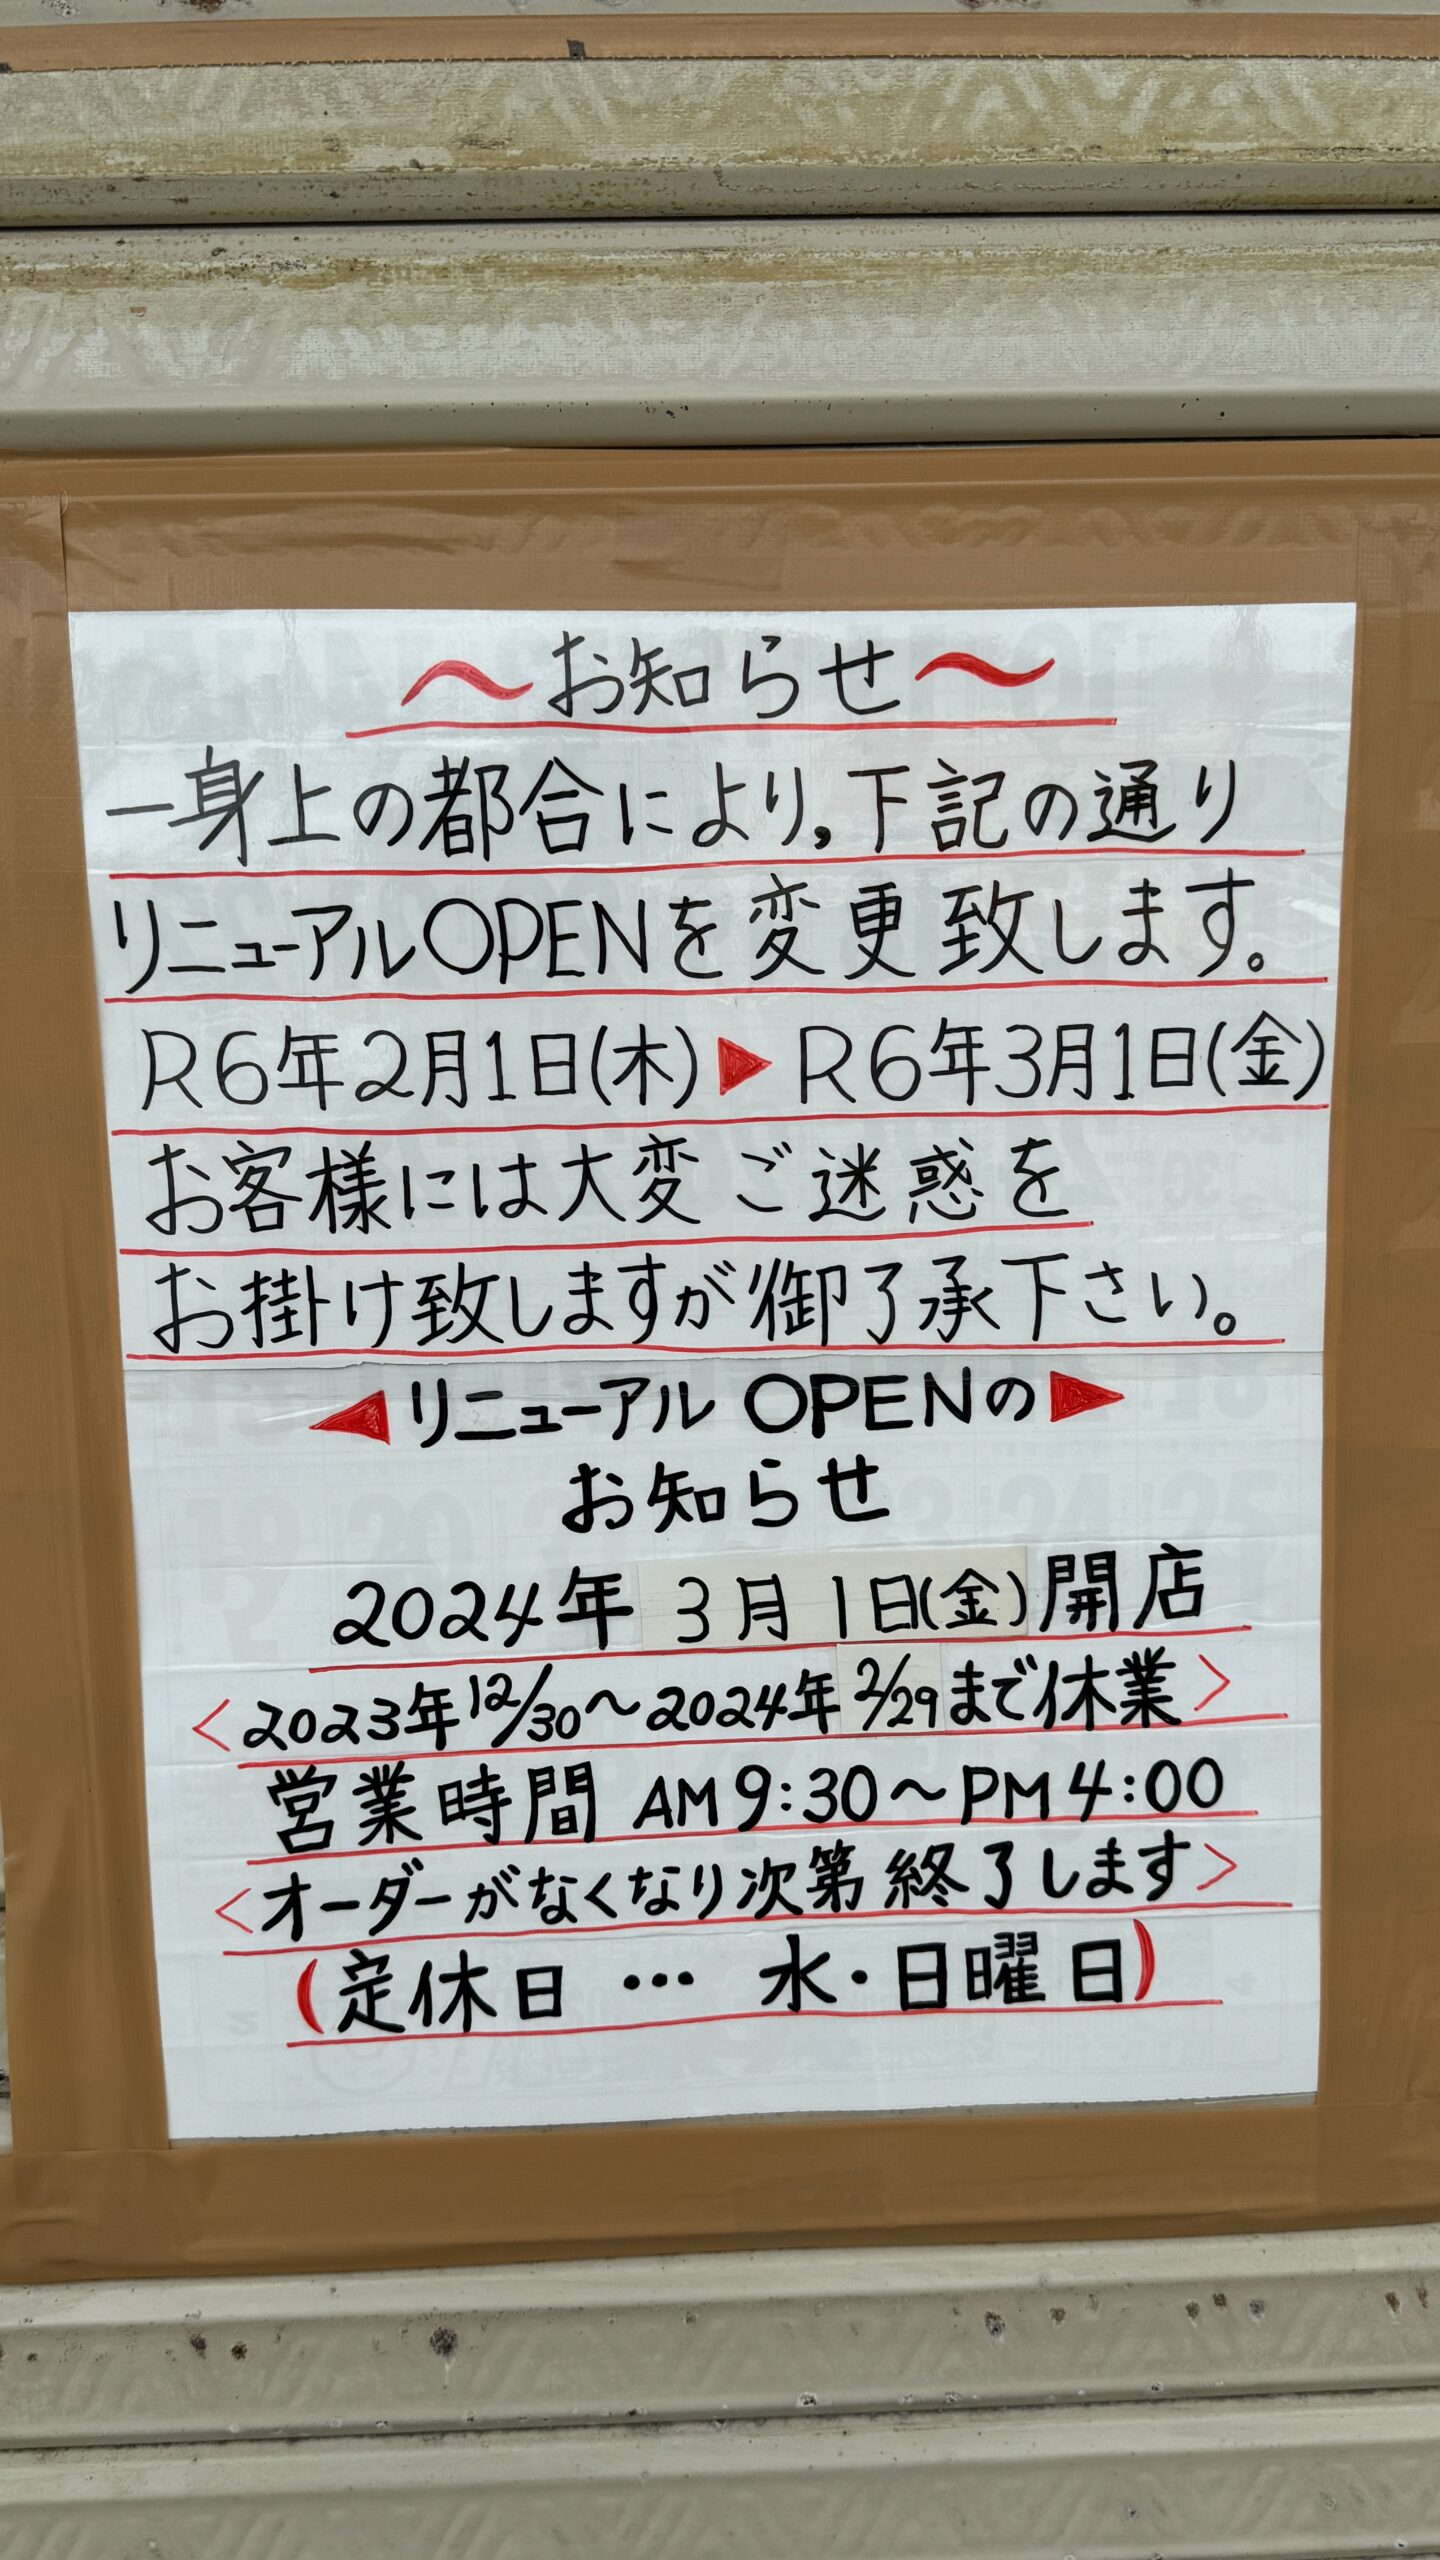 〜お知らせ〜
一身上の都合により,下記の通り
リニューアルOPENを変更致します。
R6年2月1日(木)▶R6年3月1日(金)
お客様には大変ご迷惑を
お掛け致しますが御了承下さい。
◀リニューアルOPENの▶
お知らせ
2024年3月1日(金)開店
<2023年12/30〜2024年2/29まで休業>
営業時間 AM9:30〜PM4:00
<オーダーがなくなり次第終了します>
(定休日 … 水・日曜日)